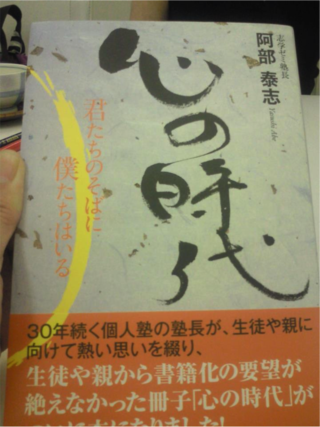 志学ゼミ塾長
阿部 泰志
Taishi Abe
心の時代
君たちのそばに
僕たちはいる
30年続く個人塾の塾長が、生徒や親に
向けて熱い思いを綴り、
生徒や親から書籍化の要望が
絶えなかった冊子「心の時代」が